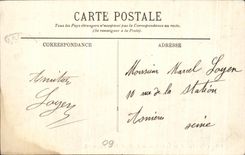 CARTE POSTALE
Tous les Pays étrangers n'acceptent pas la Correspondance au recto.
(Se renseigner à la Poste)
CORRESPONDANCE
ADRESSE
Amitiés
Loyen
Monsieur Marcel Loyen
10 rue de la Station
Asnières
Seine
09